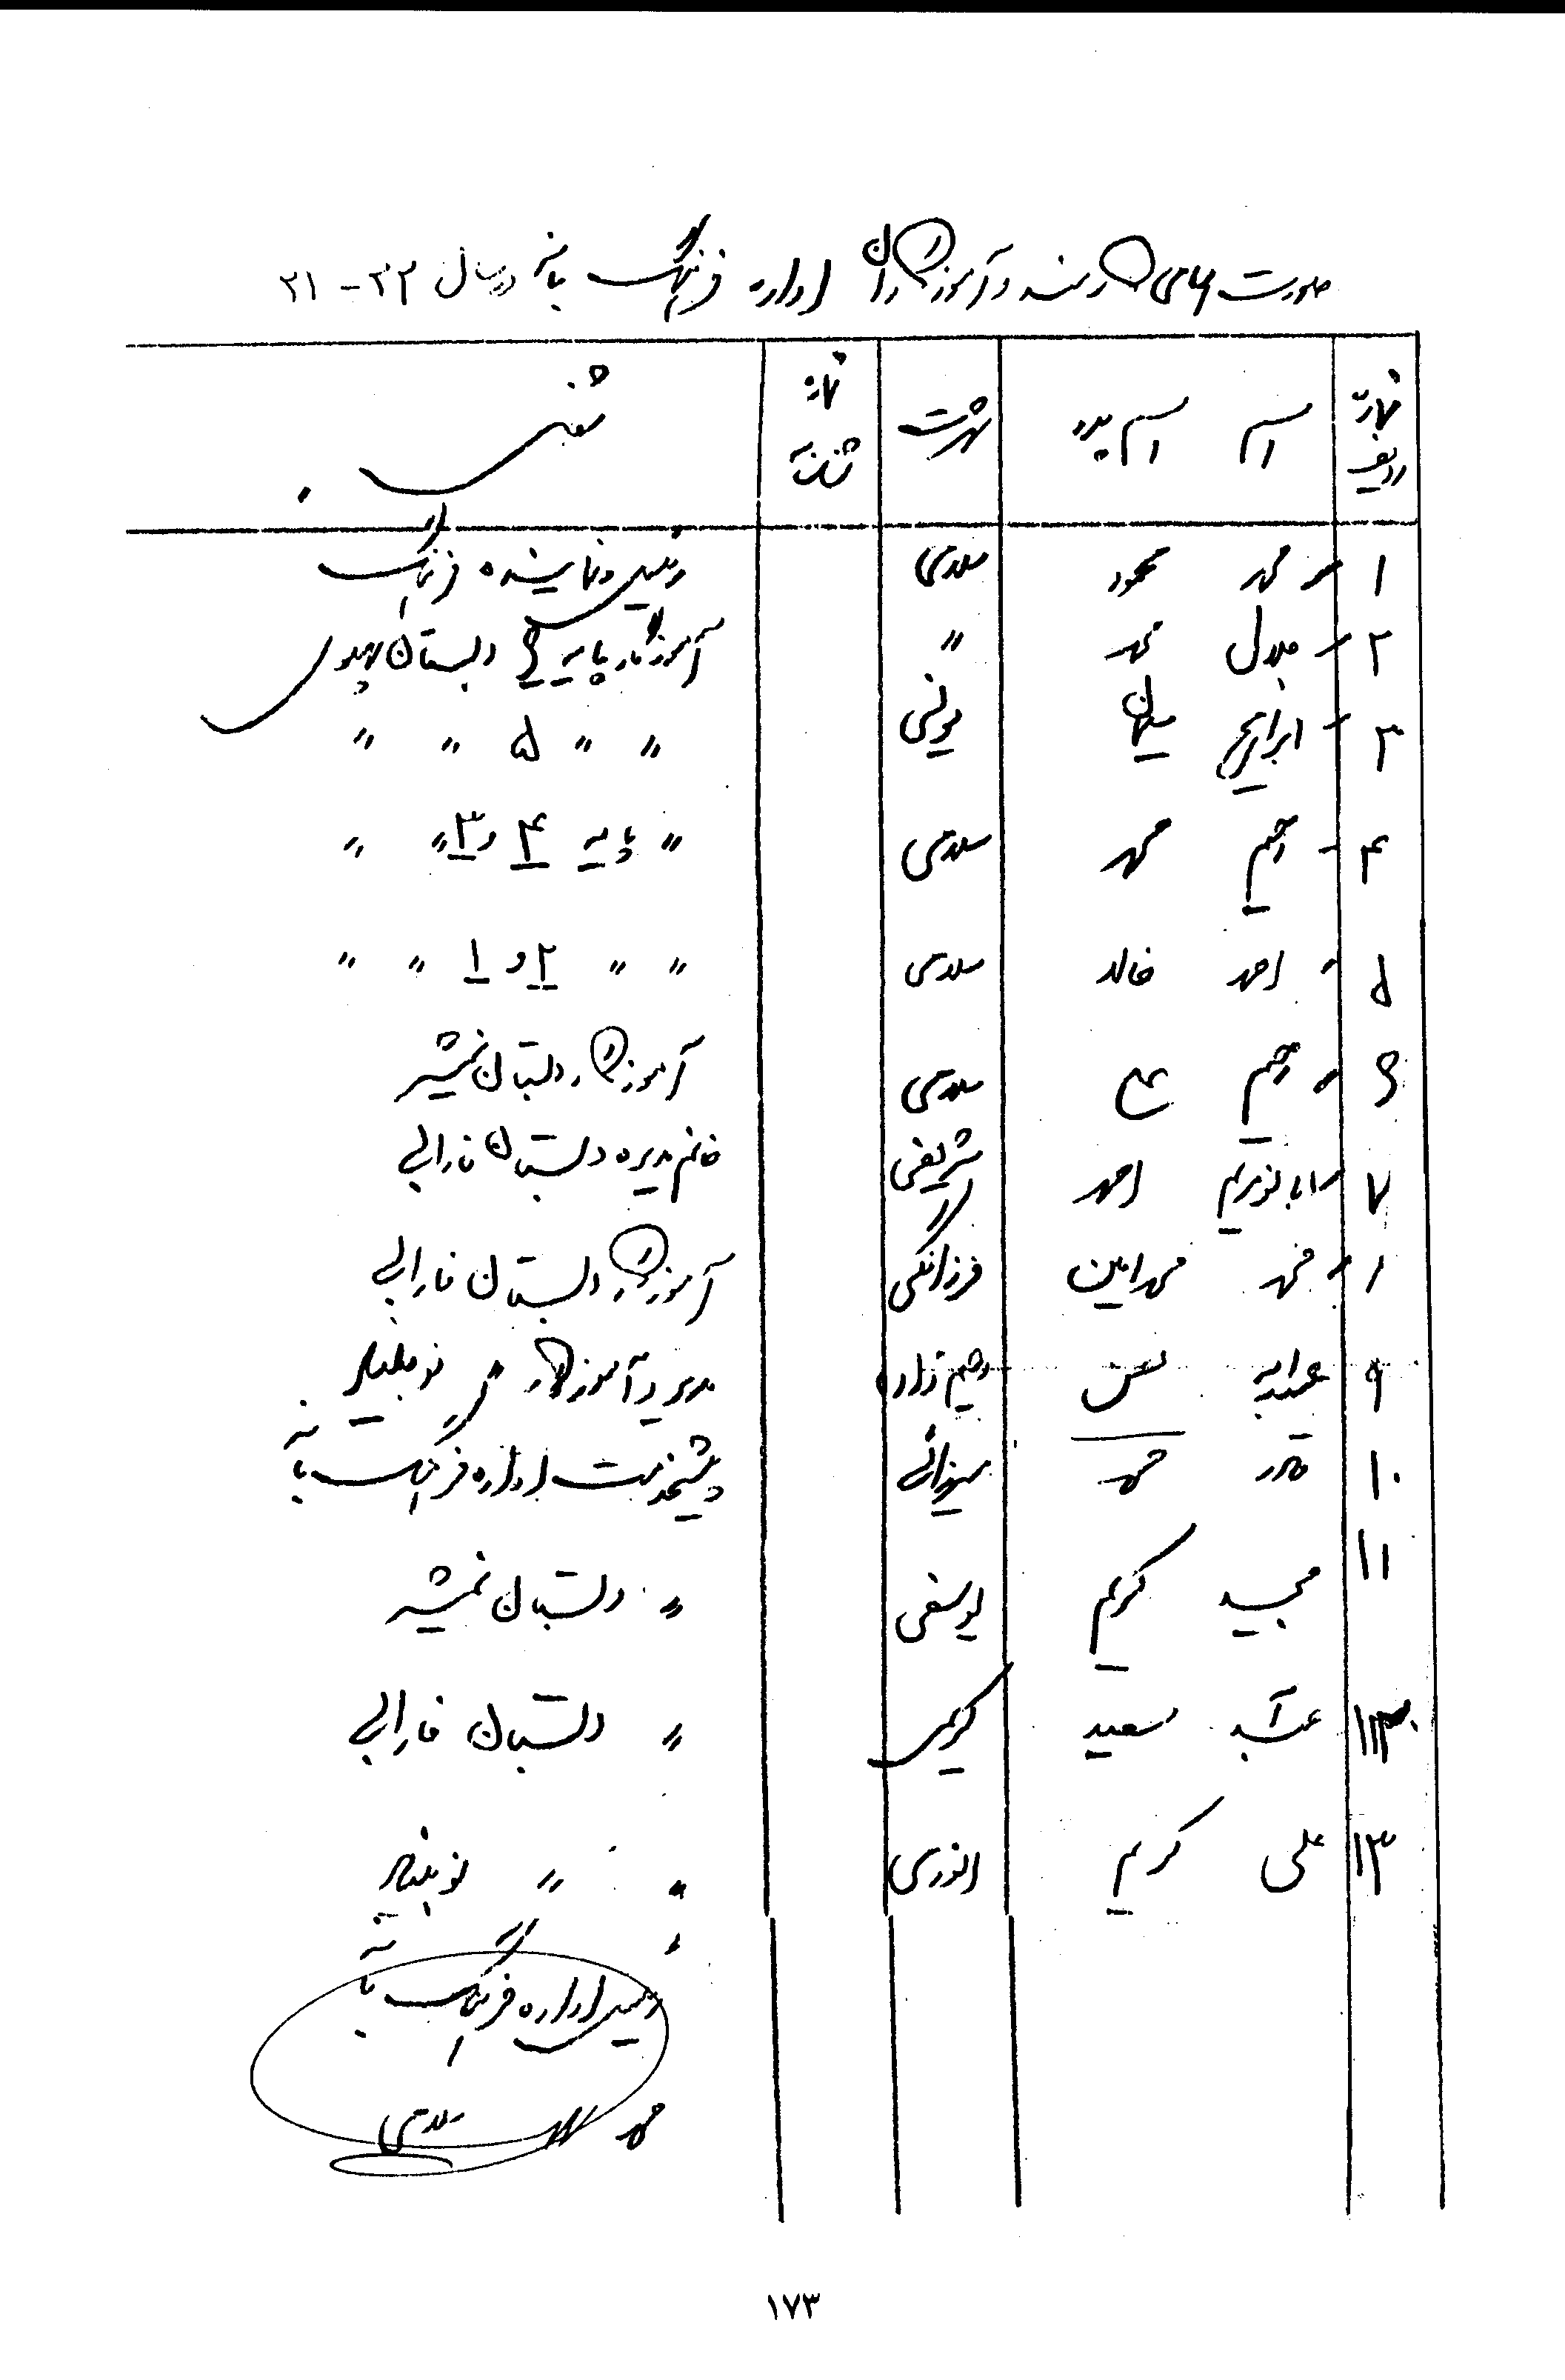 صورت اسامی کارمند و آموزگاران اداره فرهنگ بانه در سال ۲۲-۲۱
شماره ردیف اسم اسم پدر شهرت شماره شناسنامه شغل
۱ محمد محمود سلامی رئیس و نماینده فرهنگ
۲ جلال محمد " آموزگار پایه دبستان پهلوی
۳ ابراهیم سلیمان مونسی " " ۵ " "
۴ رحیم محمد سلامی " پایه ۴ و ۳ " "
۵ احمد خالد سلامی " " ۲ و ۱ " "
۶ رحیم علی سلامی آموزگار دبستان نمشیر
۷ احمد شریفی خانم مدیره دبستان فارابی
۸ محمد محمدامین فرزانگی آموزگار دبستان فارابی
۹ عبدالله رحیم زاده مدیر و آموزگار "
۱۰ قادر محمد میرزائی پیشخدمت اداره فرهنگ بانه
۱۱ مجید کریم یوسفی " دبستان نمشیر
۱۲ سعید کریمی " دبستان فارابی
۱۳ علی کریم انوری " "
رئیس اداره فرهنگ بانه
محمد سلامی
۱۷۳